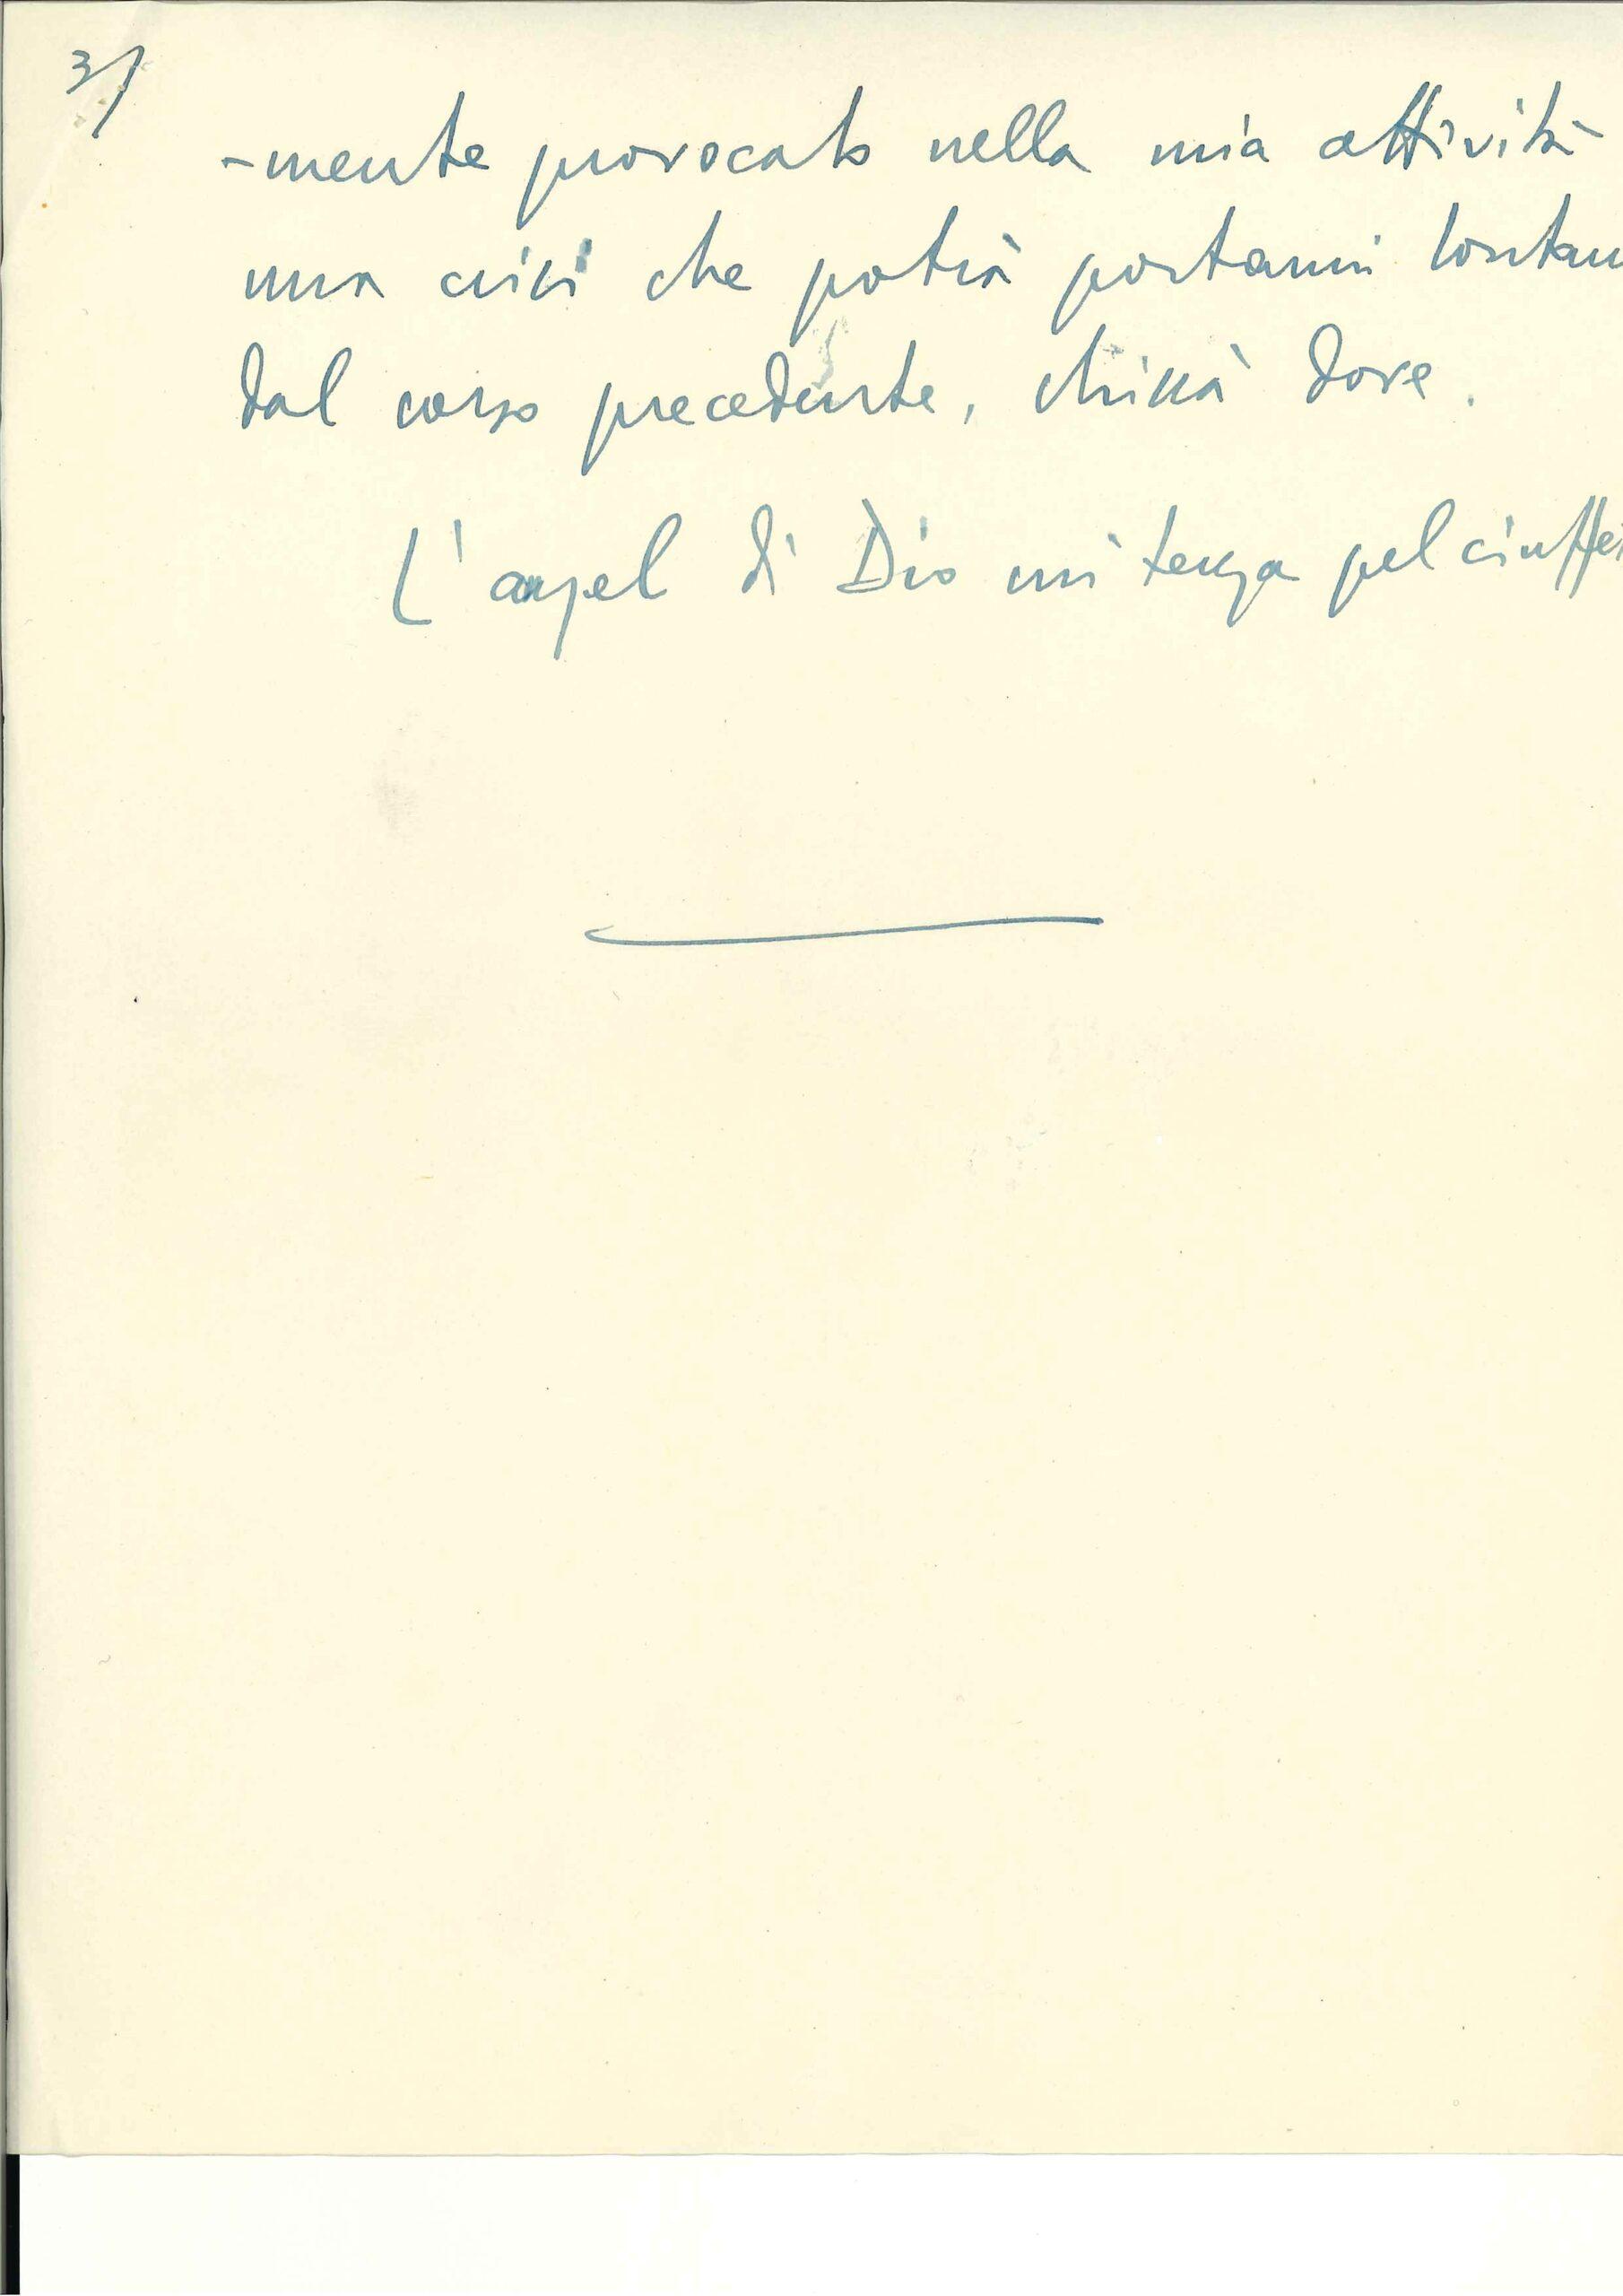 3/
-mente provocato nella mia attività
una crisi che potrà portarmi lontan
dal corso precedente, chissà dove.
L'angel di Dio mi tenga pel ciuffe